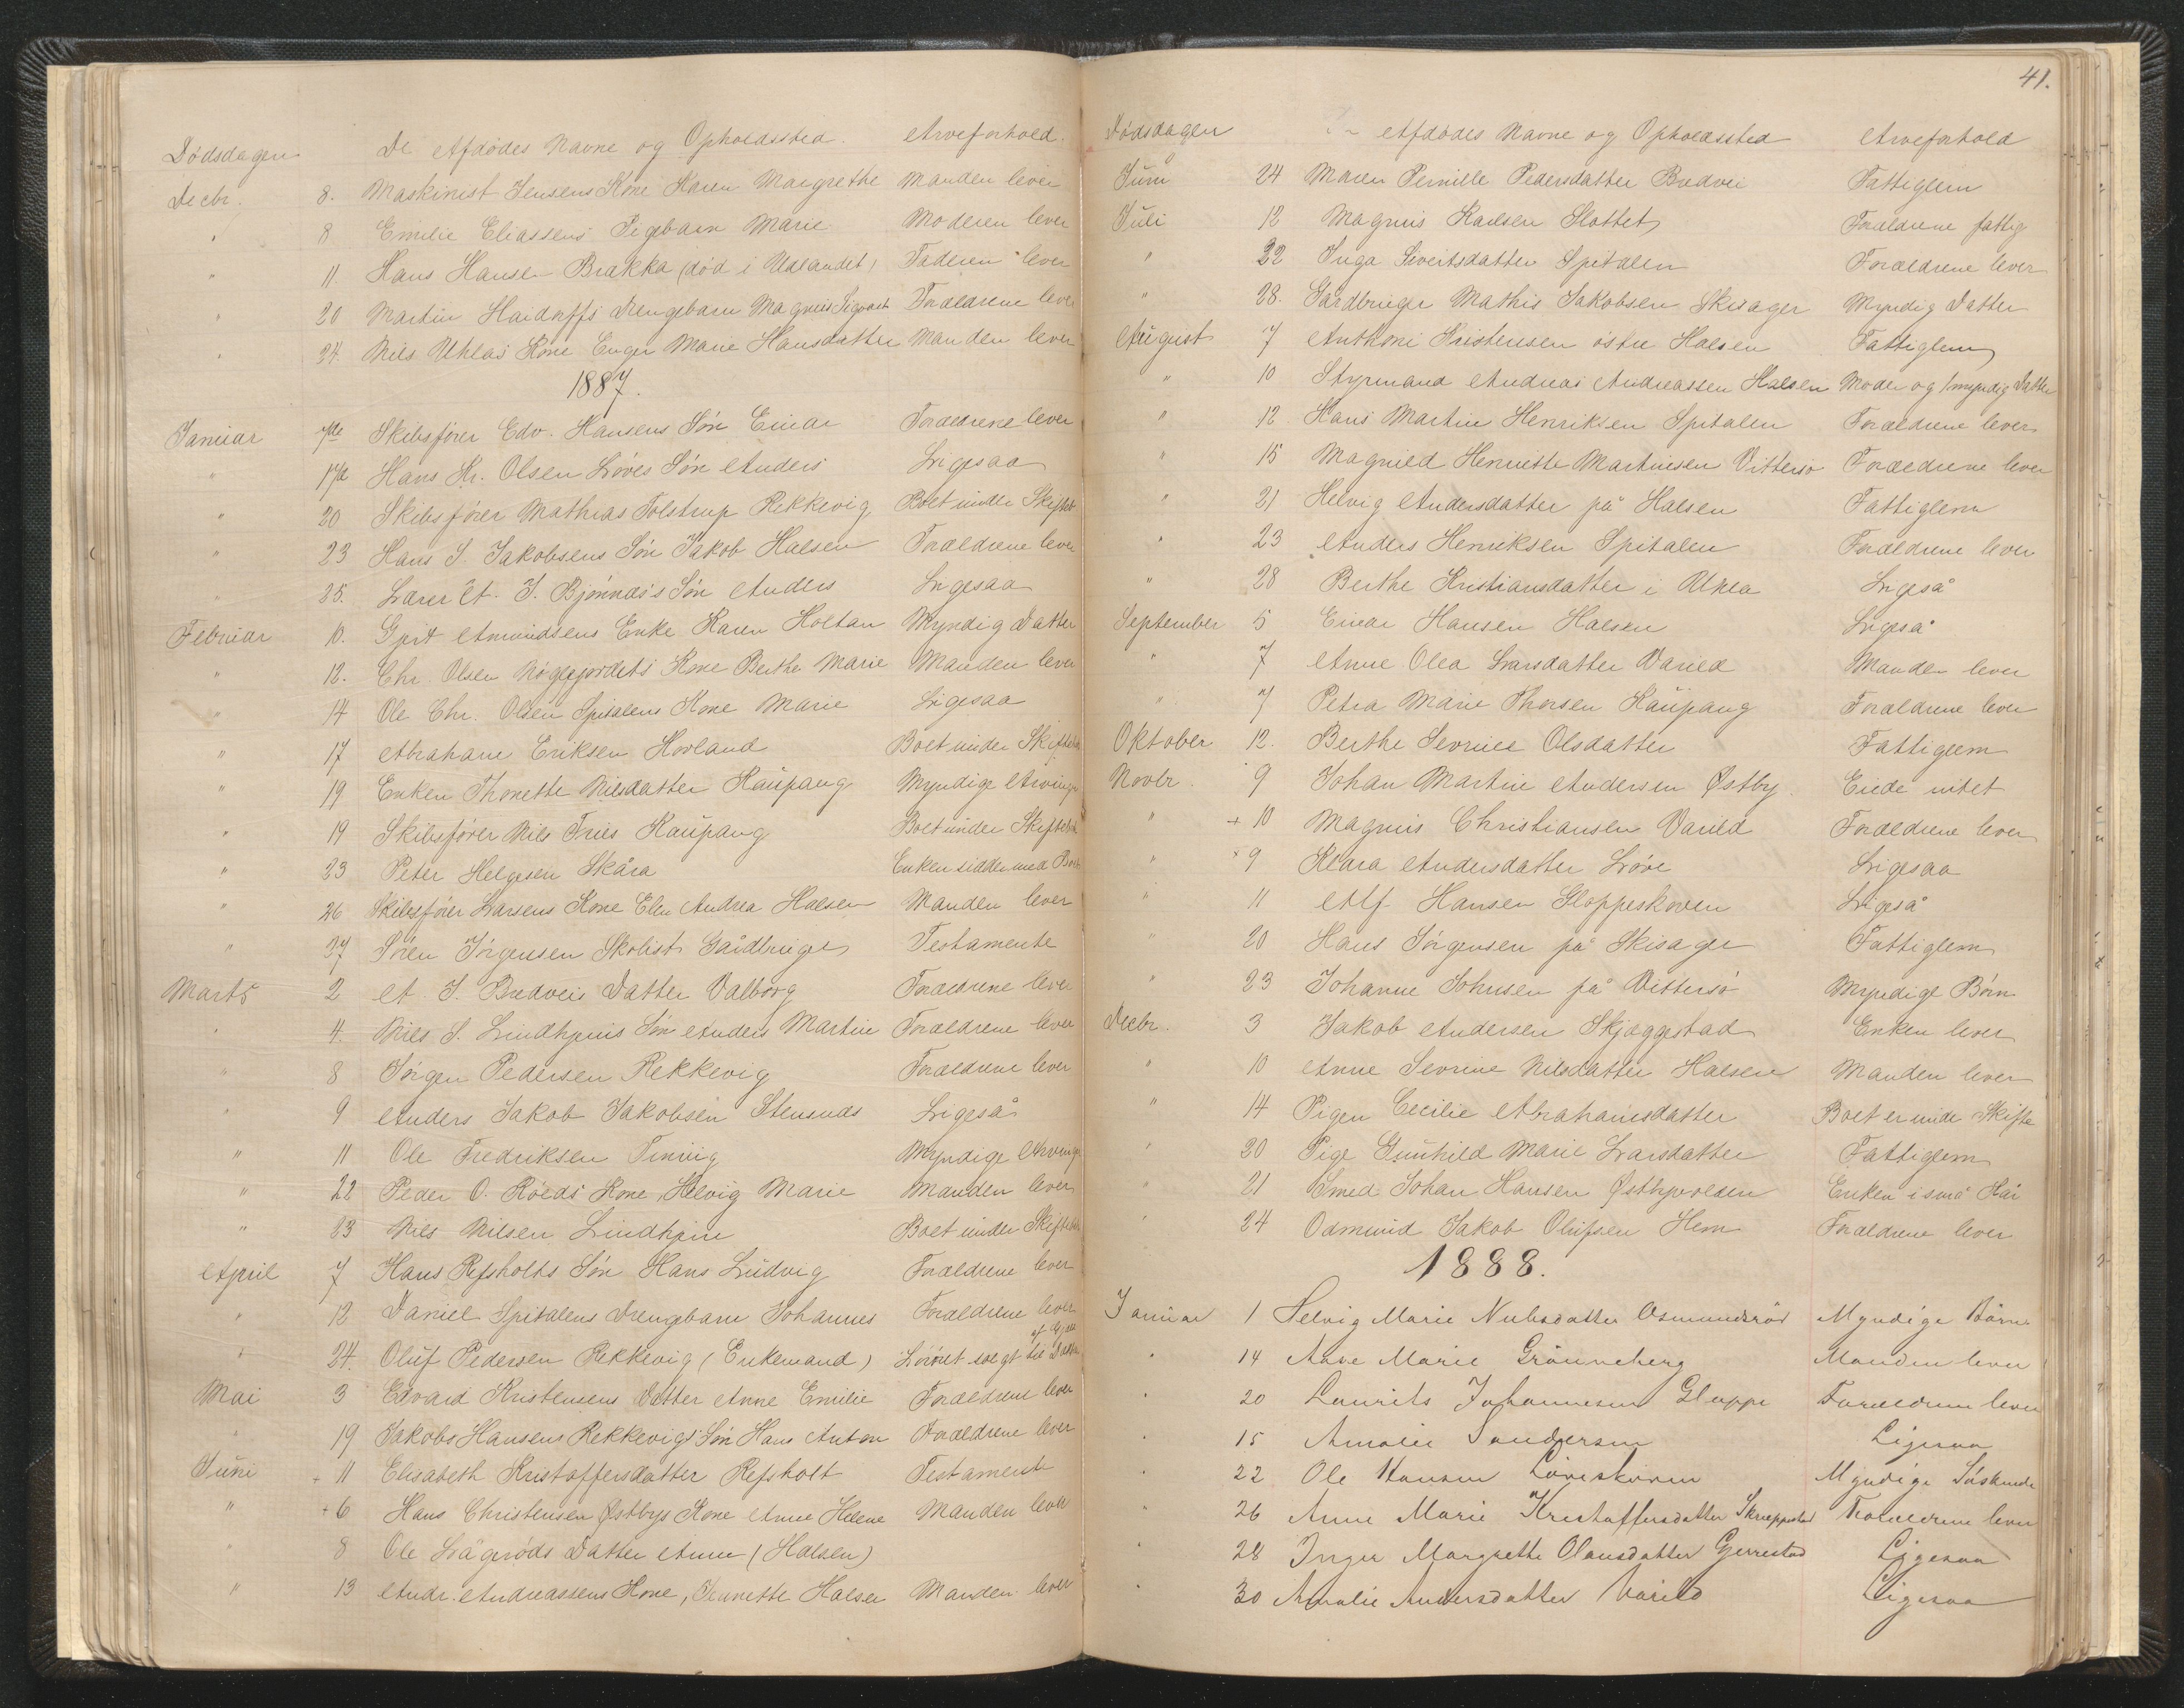 Dödsdagen De Afdödes Navne og Opholdssted. Arveforhold.
Decbr. 8. Maskinist Jensens Kone Karen Margrethe Manden lever
" 8 Emilie Eliassens Pigebarn Marie Moderen lever
" 11. Hans Hansen Brakka (död i Udlandet) Faderen lever
" 20 Martin Haidorffs Drengebarn Magnus Sigvart Forældrene lever
" 24. Nils Uhlas Kone Enger Marie Hansdatter Manden lever
1887.
Januar 7de Skibsfører Edv. Hansens Sön Einar Forældrene lever
" 17de Hans Kr. Olsen Löves Sön Anders Ligesaa
" 20 Skibsförer Mathias Tolstrup Rekkevig Boet under Skifteb
" 23 Hans J. Jakobsens Sön Jakob Halsen Forældrene lever
" 25. Lærer A. J. Bjönnæs's Sön Anders Ligesaa
Februar 10. Amundsens Enke Karen Holtan Myndig Datter
" 12. Chr. Olsen Nöglegjordets Kone Berthe Marie Manden lever
" 14 Ole Chr. Olsen Spitalens Kone Marie Ligesaa
" 17 Abraham Eriksen Hovland Boet under Skifteb
" 19 Enken Thonette Nilsdatter Kaupang Myndige Arvinger
" 19 Skibsförer Nils Fries Kaupang Boet under Skifteb
" 23 Peter Helgesen Skåra Enken sidder med Boet
" 26 Skibsförer Larsens Kone Elen Andrea Halsen Manden lever
" 27 Sören Jörgensen Skolist Gaardbruger Testamente
Marts 2 A. J. Bredveis Datter Valborg Forældrene lever
" 4. Nils J. Lindhjems Sön Anders Martin Forældrene lever
" 8 Jörgen Pedersen Rekkevig Forældrene lever
" 9 Anders Jakob Jakobsen Stensnæs Ligeså
" 11 Ole Fredriksen Tinvig Myndige Arvinger
" 22 Peder O. Röeds Kone Helvig Marie Manden lever
" 23 Nils Nilsen Lindhjem Boet under Skifteb
April 7 Hans Refsholts Sön Hans Ludvig Forældrene lever
" 12 Daniel Spitalens Drengebarn Johannes Forældrene lever
" 24. Oluf Pedersen Rekkevig (Enkemand) Lösöret solgt til
Mai 3 Edvard Kristensens Datter Anne Emilie Forældrene lever
" 19 Jakobs Hansens Rekkevigs Sön Hans Anton Forældrene lever
Juni + 11 Elisabeth Kristoffersdatter Refsholt Testament
" + 6 Hans Christensen Østbys Kone Anne Helene Manden lever
" 8 Ole Lågeröds Datter Anna (Halsen)
" 13 Andr. Andreassens Kone, Jeanette Halsen Manden lever
41.
Dödsdagen Afdödes Navne og Opholdssted Arveforhold
Juni 24 Maren Pernille Pedersdatter Bredvei Fattiglem
Juli 12 Magnus Karlsen Slottet Forældrene fattig
" 22 Inga Sivertsdatter Spitalen Forældrene lever
" 28. Gårdbruger Mathis Jakobsen Skisager Myndig Datter
August 7 Anthoni Kristensen östre Halsen Fattiglem
" 10 Styrmand Andreas Andreassen Halsen Moder og 1 myndig Datter
" 12 Hans Martin Henriksen Spitalen Forældrene lever
" 15 Magnild Henriette Martinsen Vittersö Forældrene lever
" 21 Helvig Andersdatter på Halsen Fattiglem
" 23 Anders Henriksen Spitalen Forældrene lever
" 28 Berthe Kristiansdatter i Uhla Ligeså
September 5 Einar Hansen Halsen Ligeså
" 7 Anne Olea Larsdatter Varild Manden lever
" 7 Petra Marie Thorsen Kaupang Forældrene lever
Oktober 12. Berthe Sevrine Olsdatter Fattiglem
Novbr. 9 Johan Martin Andersen Østby Eiede intet
" + 10 Magnus Christiansen Varild Forældrene lever
" × 9 Klara Andersdatter Löve Ligesaa
" 11 Alf Hansen Gloppeskoven Ligeså
" 20 Hans Jörgensen på Skisager Fattiglem
" 23 Johanne Johnsen på Vittersö Myndige Börn
Decbr. 3 Jakob Andersen Skjæggestad Enken lever
" 10 Anne Sevrine Nilsdatter Halsen Manden lever
" 14 Pigen Cecilie Abrahamsdatter Boet er under Skifte
" 20 Pige Gunhild Marie Larsdatter Fattiglem
" 21 Smed Johan Hansen Østbyvolden Enken i små Kår
" 24 Odmund Jakob Olufsen Hem Forældrene lever
1888.
Januar 1 Helvig Marie Nielsdatter Osmundsröd Myndige Börn
" 14 Anne Marie Grönneberg Manden lever
" 20 Laurits Johannesen Gloppe Forældrene lever
" 15 Amalie Sandersen Ligesaa
" 22 Ole Hansen Löveskoven Myndige Söskende
" 26 Anne Marie Kristoffersdatter Skræppestad Forældrene lever
" 28 Inger Margrethe Olausdatter Gjerrestad Ligesaa
" 30 Amalie Andersdatter Varild Ligesaa